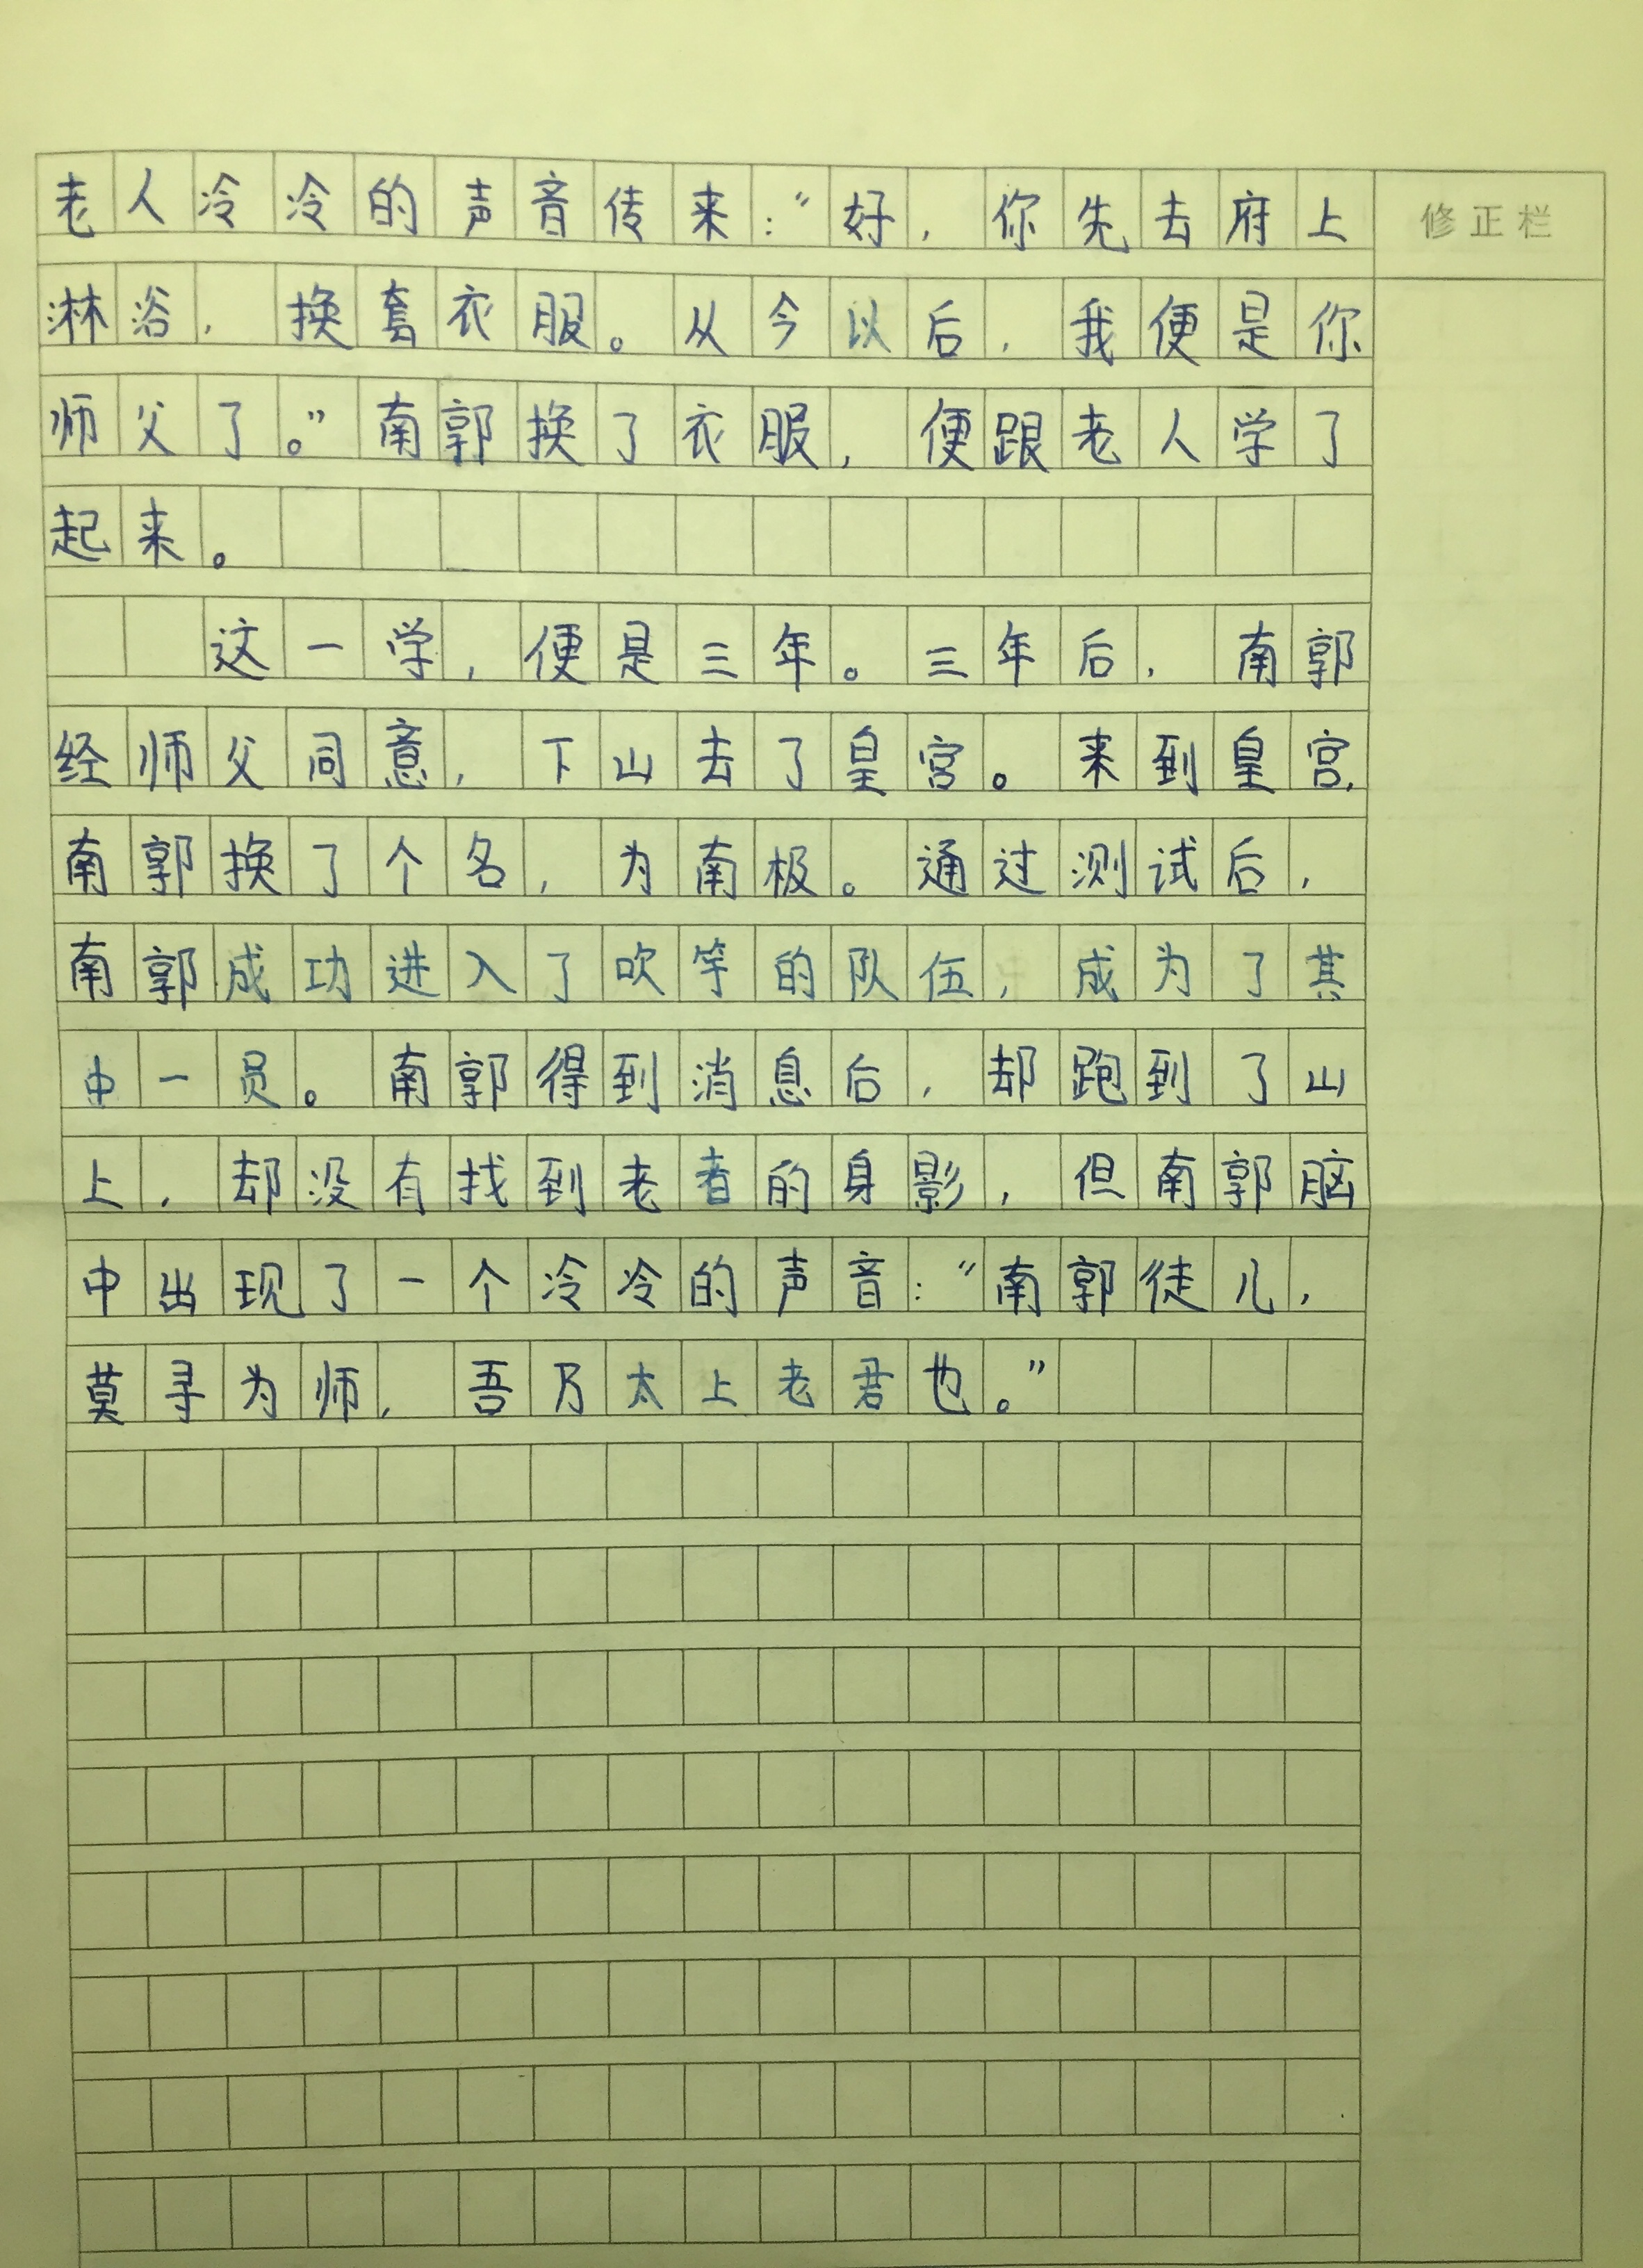 老人冷冷的声音传来：“好，你先去府上
修正栏
淋浴，换套衣服。从今以后，我便是你
师父了。”南郭换了衣服，便跟老人学了
起来。
这一学，便是三年。三年后，南郭
经师父同意，下山去了皇宫。来到皇宫，
南郭换了个名，为南极。通过测试后，
南郭成功进入了吹竽的队伍，成为了其
中一员。南郭得到消息后，却跑到了山
上，却没有找到老者的身影，但南郭脑
中出现了一个冷冷的声音：“南郭徒儿，
莫寻为师，吾乃太上老君也。”